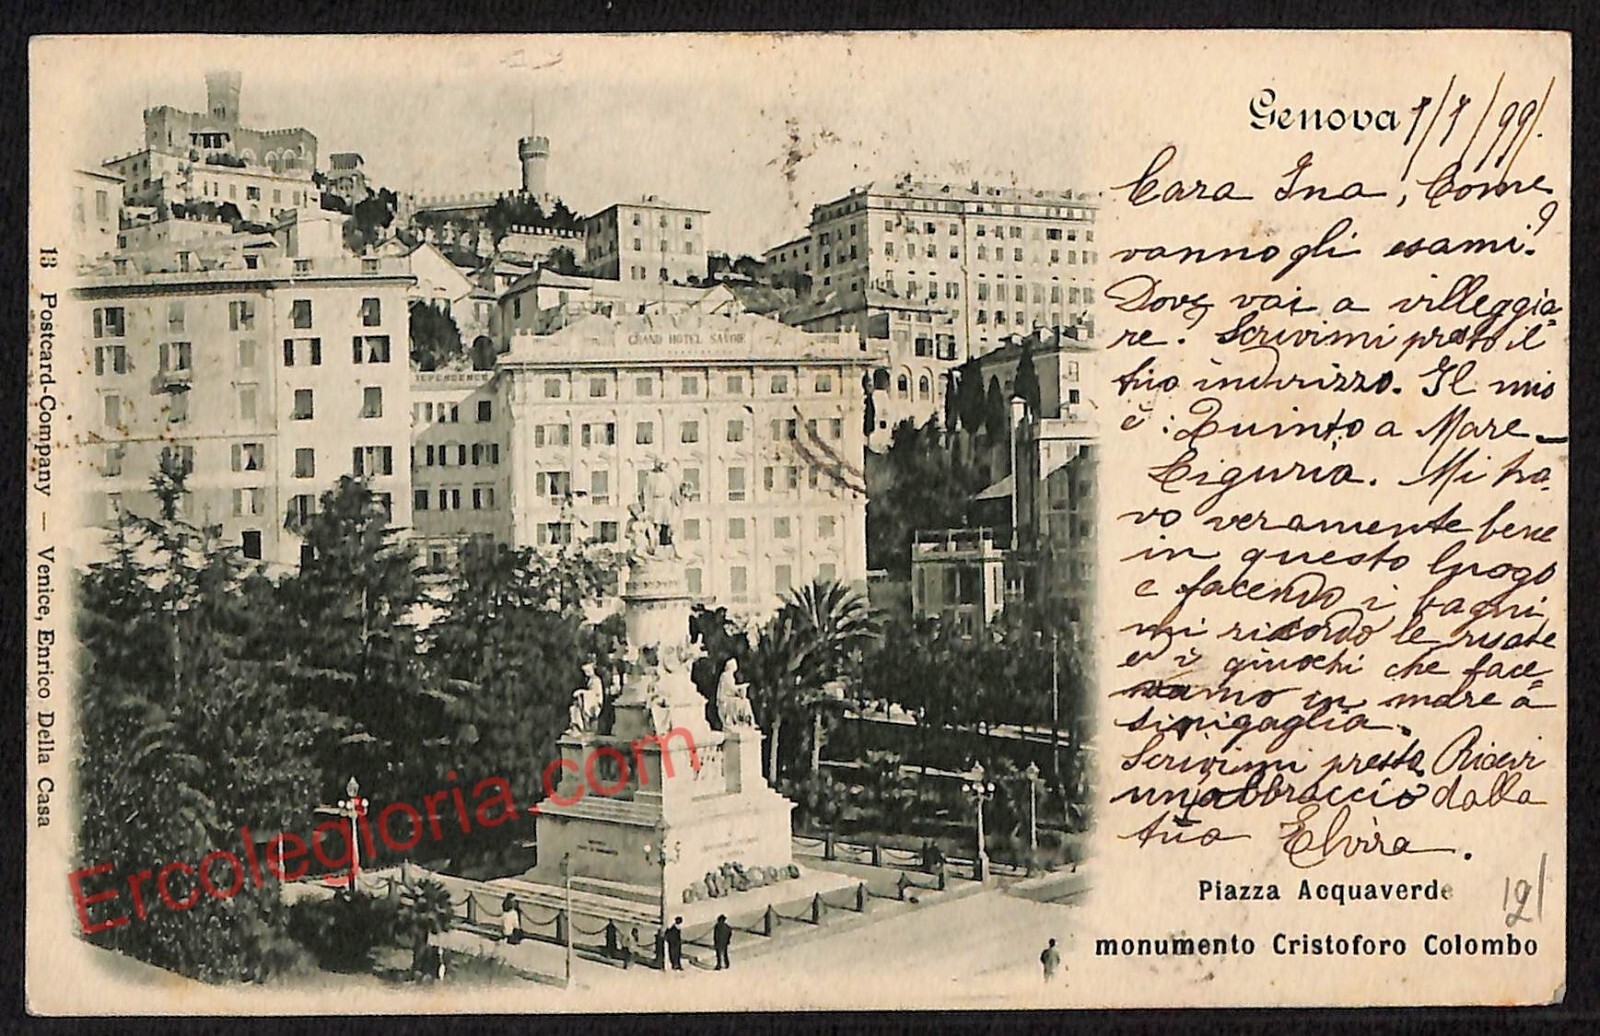 Genova 7/7/99.
Cara Ina, Come
vanno gli esami?
Dove vai a villeggia=
re? Scrivimi presto il
tuo indirizzo. Il mio
è: Quinto a Mare –
Liguria. Mi tro-
vo veramente bene
in questo luogo
e facendo i bagni
mi ricordo le risate
e i giuochi che face=
vamo in mare a
Sinigaglia.
Scrivimi presto. Ricevi
un abbraccio dalla
tua Elvira.
Piazza Acquaverde
monumento Cristoforo Colombo
13 Postcard-Company — Venice, Enrico Della Casa
GRAND HOTEL SAVOIE
Ercolegioria.com